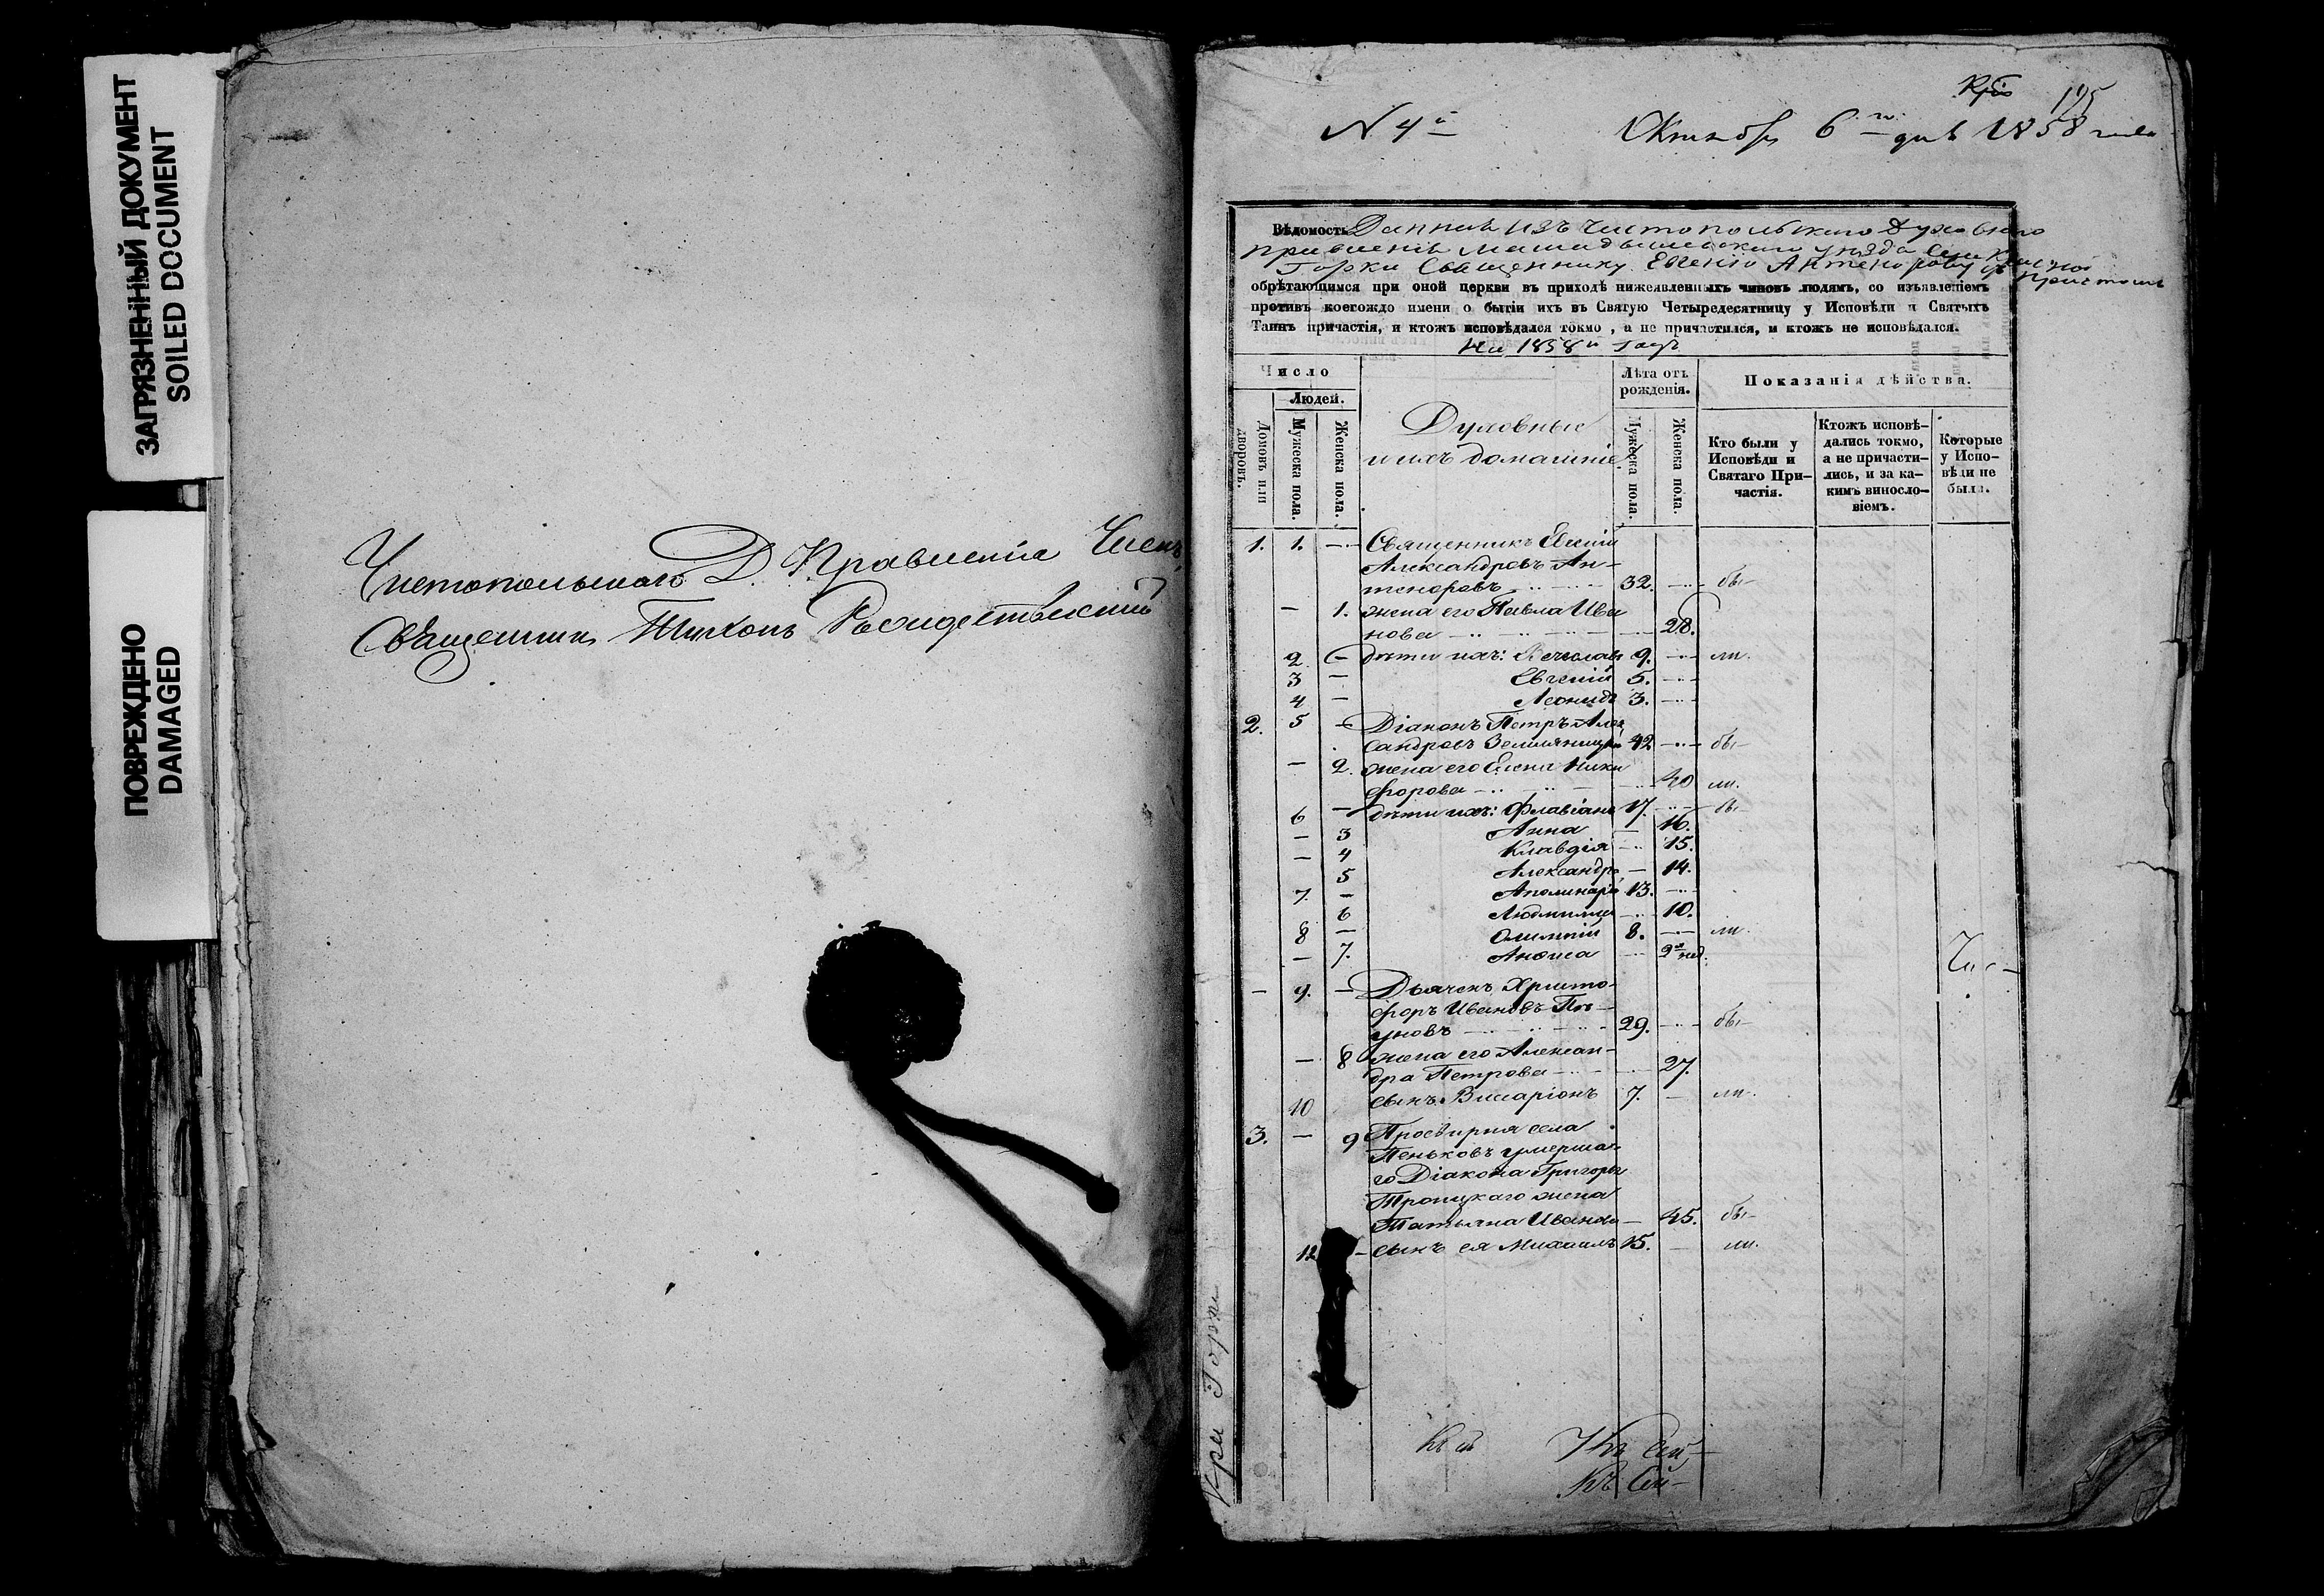 ЗАГРЯЗНЕННЫЙ ДОКУМЕНТ
SOILED DOCUMENT
ПОВРЕЖДЕНО
DAMAGED
Чистопольскаго Д. Правленія Членъ
Священникъ Тихонъ Рождественскій
195
N 4й
Октября 6го дня 1858 года
Вѣдомость Данная изъ Чистопольскаго Духовнаго
Правленія Мамадышскаго уѣзда Села
Горки Священнику Евгенію Антенорову
обрѣтающимся при оной церкви въ приходѣ нижеявленныхъ чиновъ людямъ, со изъявленіемъ
противъ коегождо имени о бытіи ихъ въ Святую Четыредесятницу у Исповѣди и Святыхъ
Таинъ причастія, и ктожъ исповѣдался токмо, а не причастился, и ктожъ не исповѣдался.
На 1858й годъ
Число
Людей.
Домовъ или дворовъ.
Мужеска пола.
Женска пола.
Духовные
и ихъ домашніе
Лѣта отъ рожденія.
Мужеска пола.
Женска пола.
Показанія дѣйства.
Кто были у Исповѣди и Святаго Причастія.
Ктожъ исповѣдались токмо, а не причастились, и за какимъ винословіемъ.
Которые у Исповѣди не были.
1. 1. — Священникъ Евгеній
Александровъ Ан-
теноровъ 32. — бы-
— 1. жена его Павла Ива
нова — 28.
2. — дѣти ихъ: Вечеславъ 9. — ли.
3 — Евгеній 5. —
4 — Леонидъ 3. —
2. 5 — Діаконъ Петръ Алек
сандровъ Земляницкій 42 — бы-
— 2. жена его Елена Ники
форова — 40 ли.
6 — дѣти ихъ: Флавіанъ 17. — бы-
— 3 Анна — 16.
— 4 Клавдія — 15.
5 Александра — 14.
7. — Аполинарій 13. —
6 Людмилла — 10.
8 — Олимпій 8. — ли.
— 7. Анѳиса — 2 нед.
— 9. — Дьячекъ Христо-
форъ Ивановъ
29. — бы-
— 8 жена его Алексан-
дра Петрова — 27.
10 сынъ Виссаріонъ 7. — ли.
3. — 9 Просвирня села
Пеньковъ умерша-
го Діакона Григорія
Троицкаго жена
Татьяна Иванова — 45. бы-
12 — сынъ ея Михаилъ 15. — ли.
Чис-
Къ Сей-
Къ Сей-